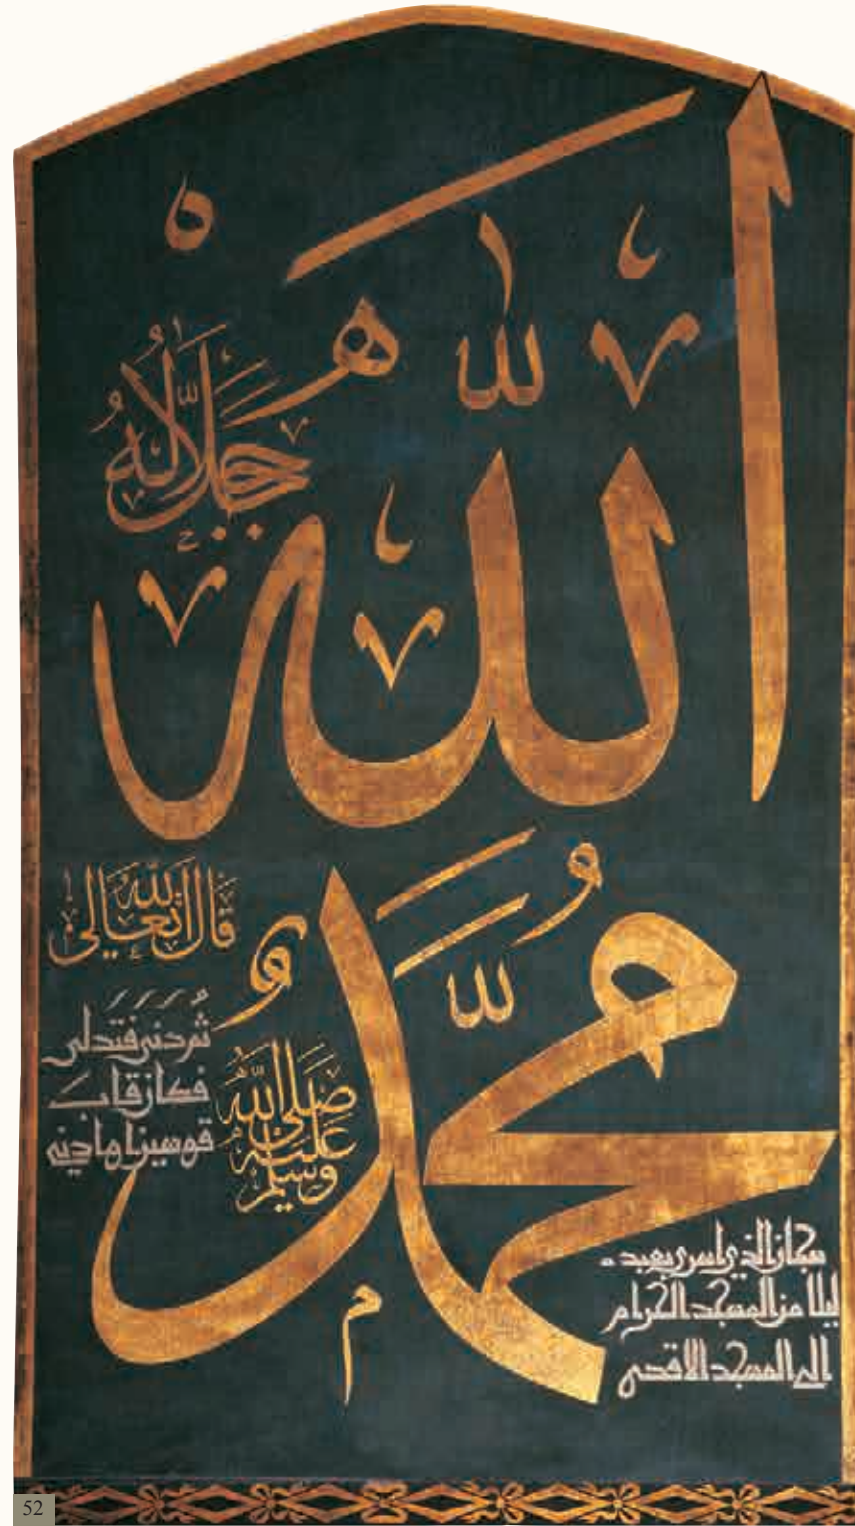 اللّٰه
جل جلاله
محمد
قال الله تعالى
ثم دنى فتدلى
فكان قاب
قوسين او ادنى
صلى الله
عليه
وسلم
سبحان الذي اسرى بعبده
ليلا من المسجد الحرام
الى المسجد الاقصى
52